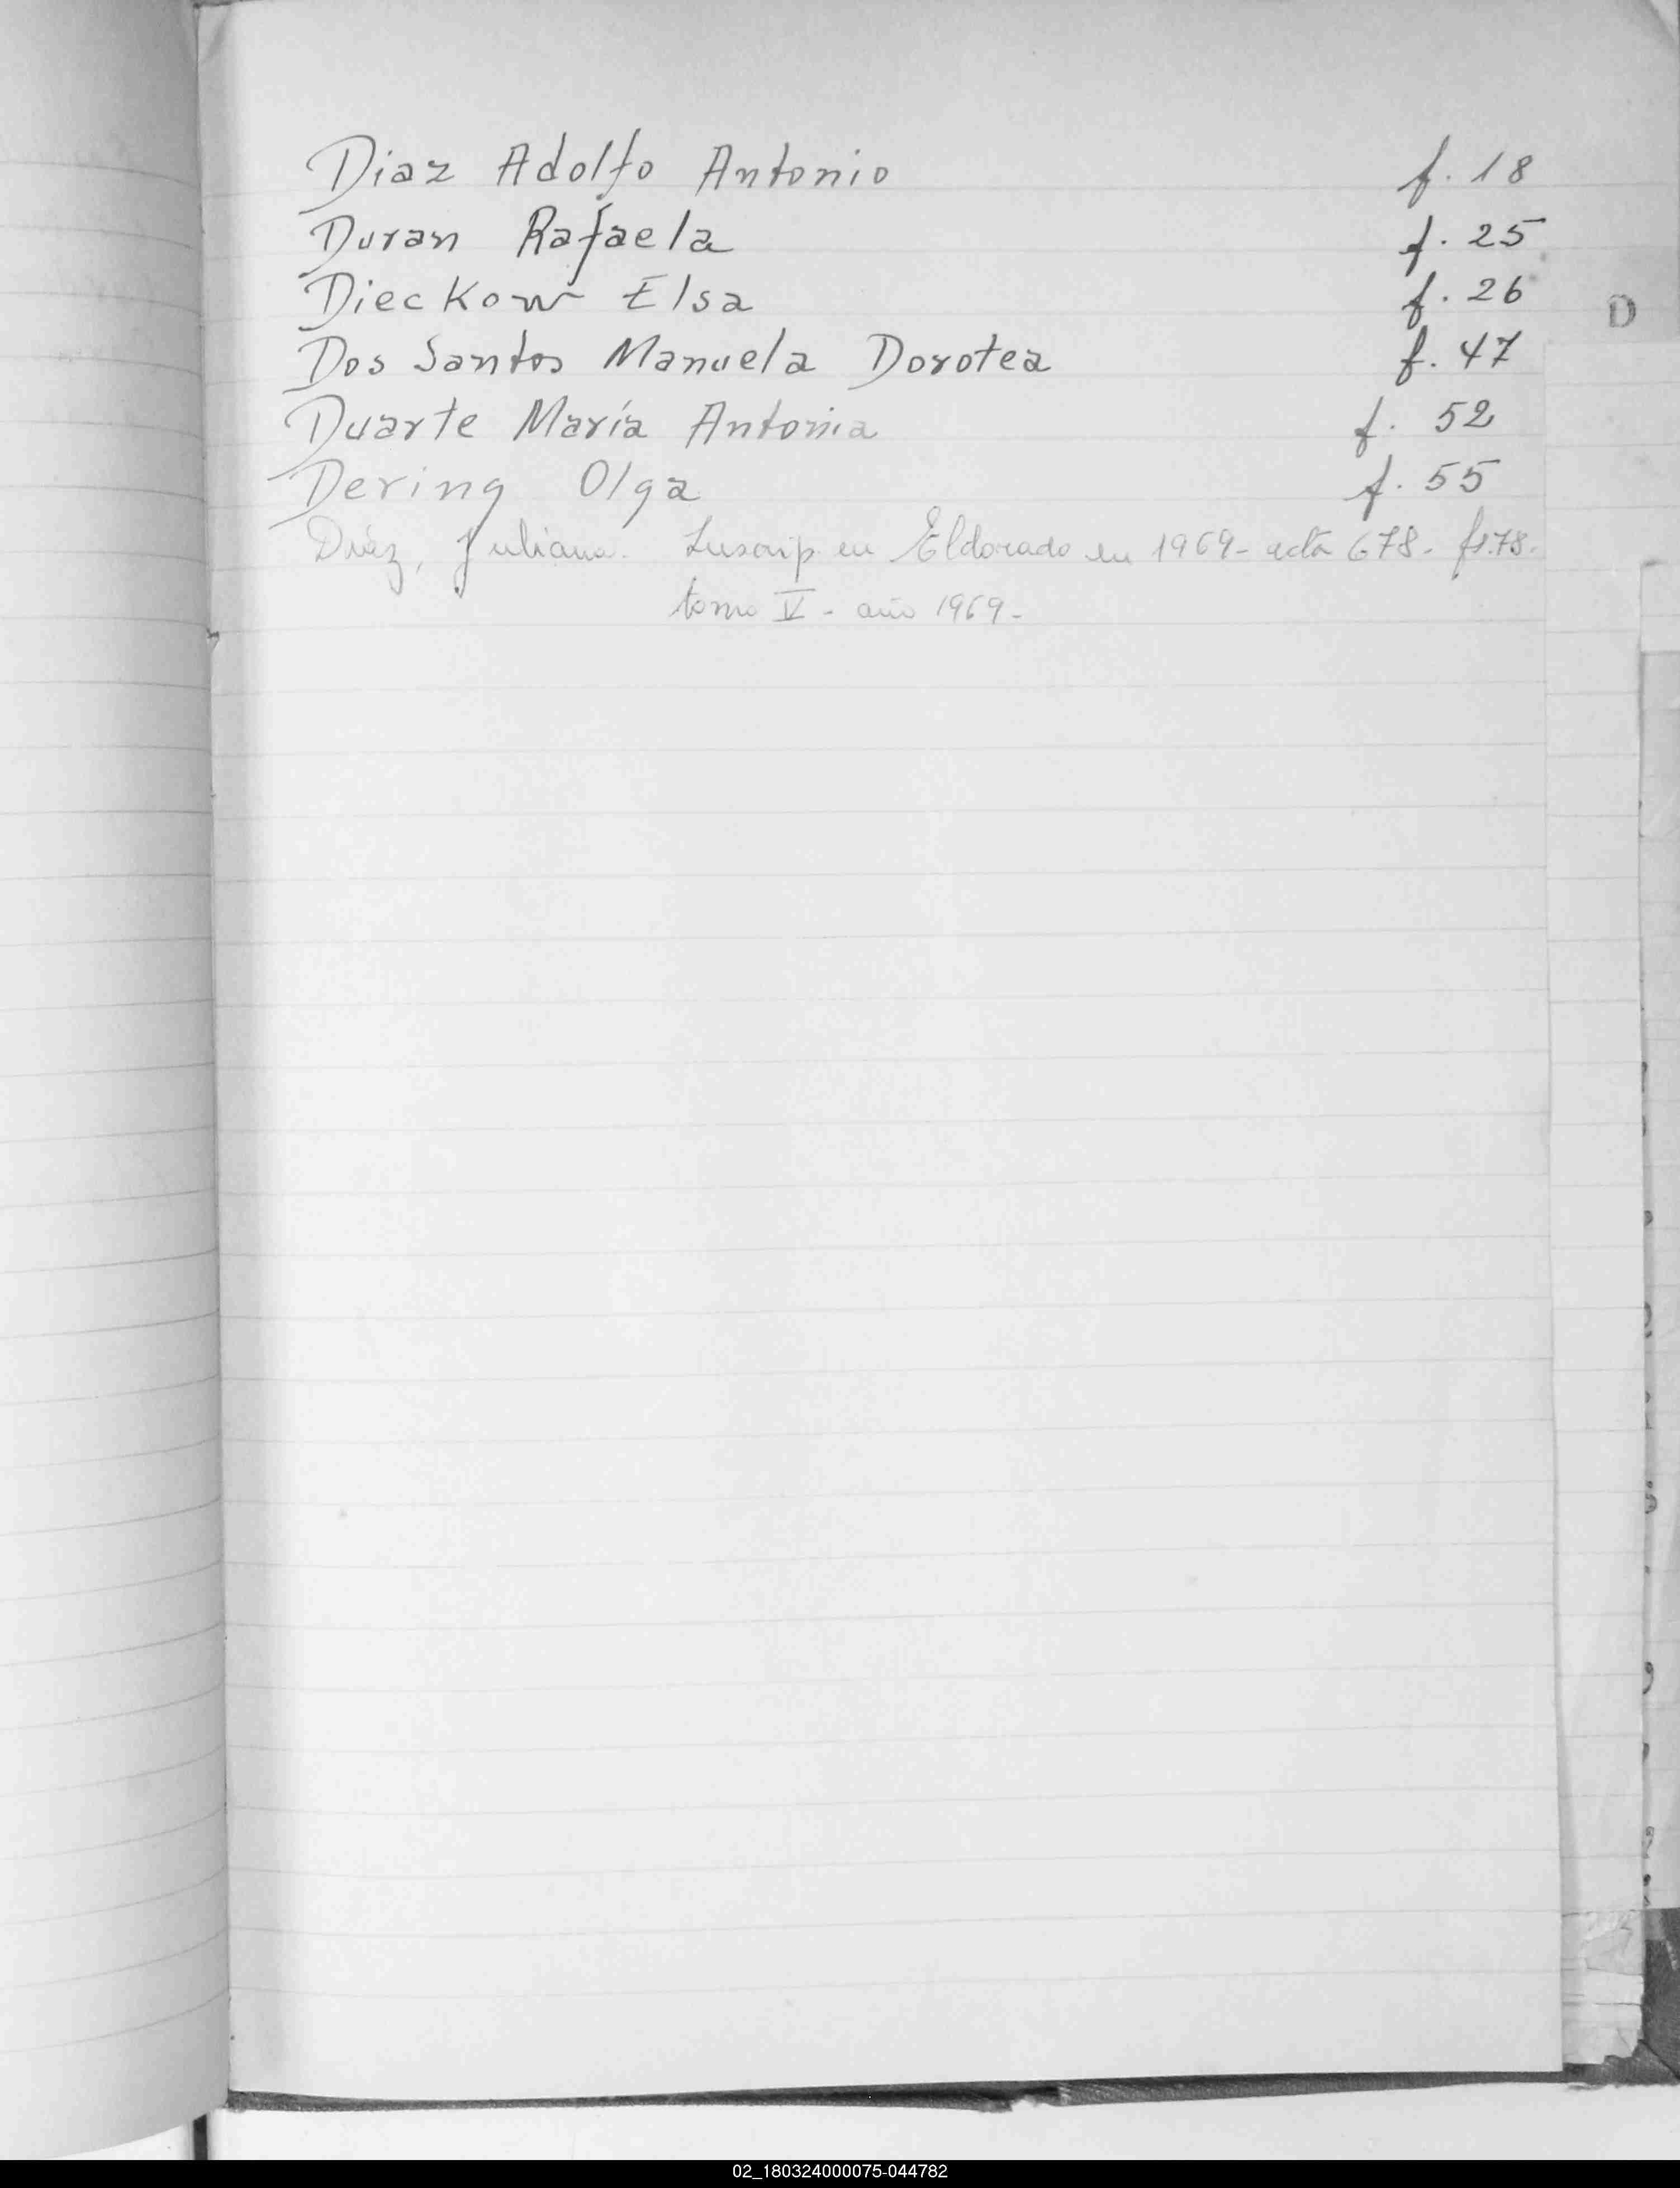 Diaz Adolfo Antonio f. 18
Duran Rafaela f. 25
Dieckow Elsa f. 26
D
Dos Santos Manuela Dorotea f. 47
Duarte María Antonia f. 52
Dering Olga f. 55
Diáz, Juliana. Inscrip en Eldorado en 1969- acta 678- fs.78.
tomo V - año 1969-
02_180324000075-044782